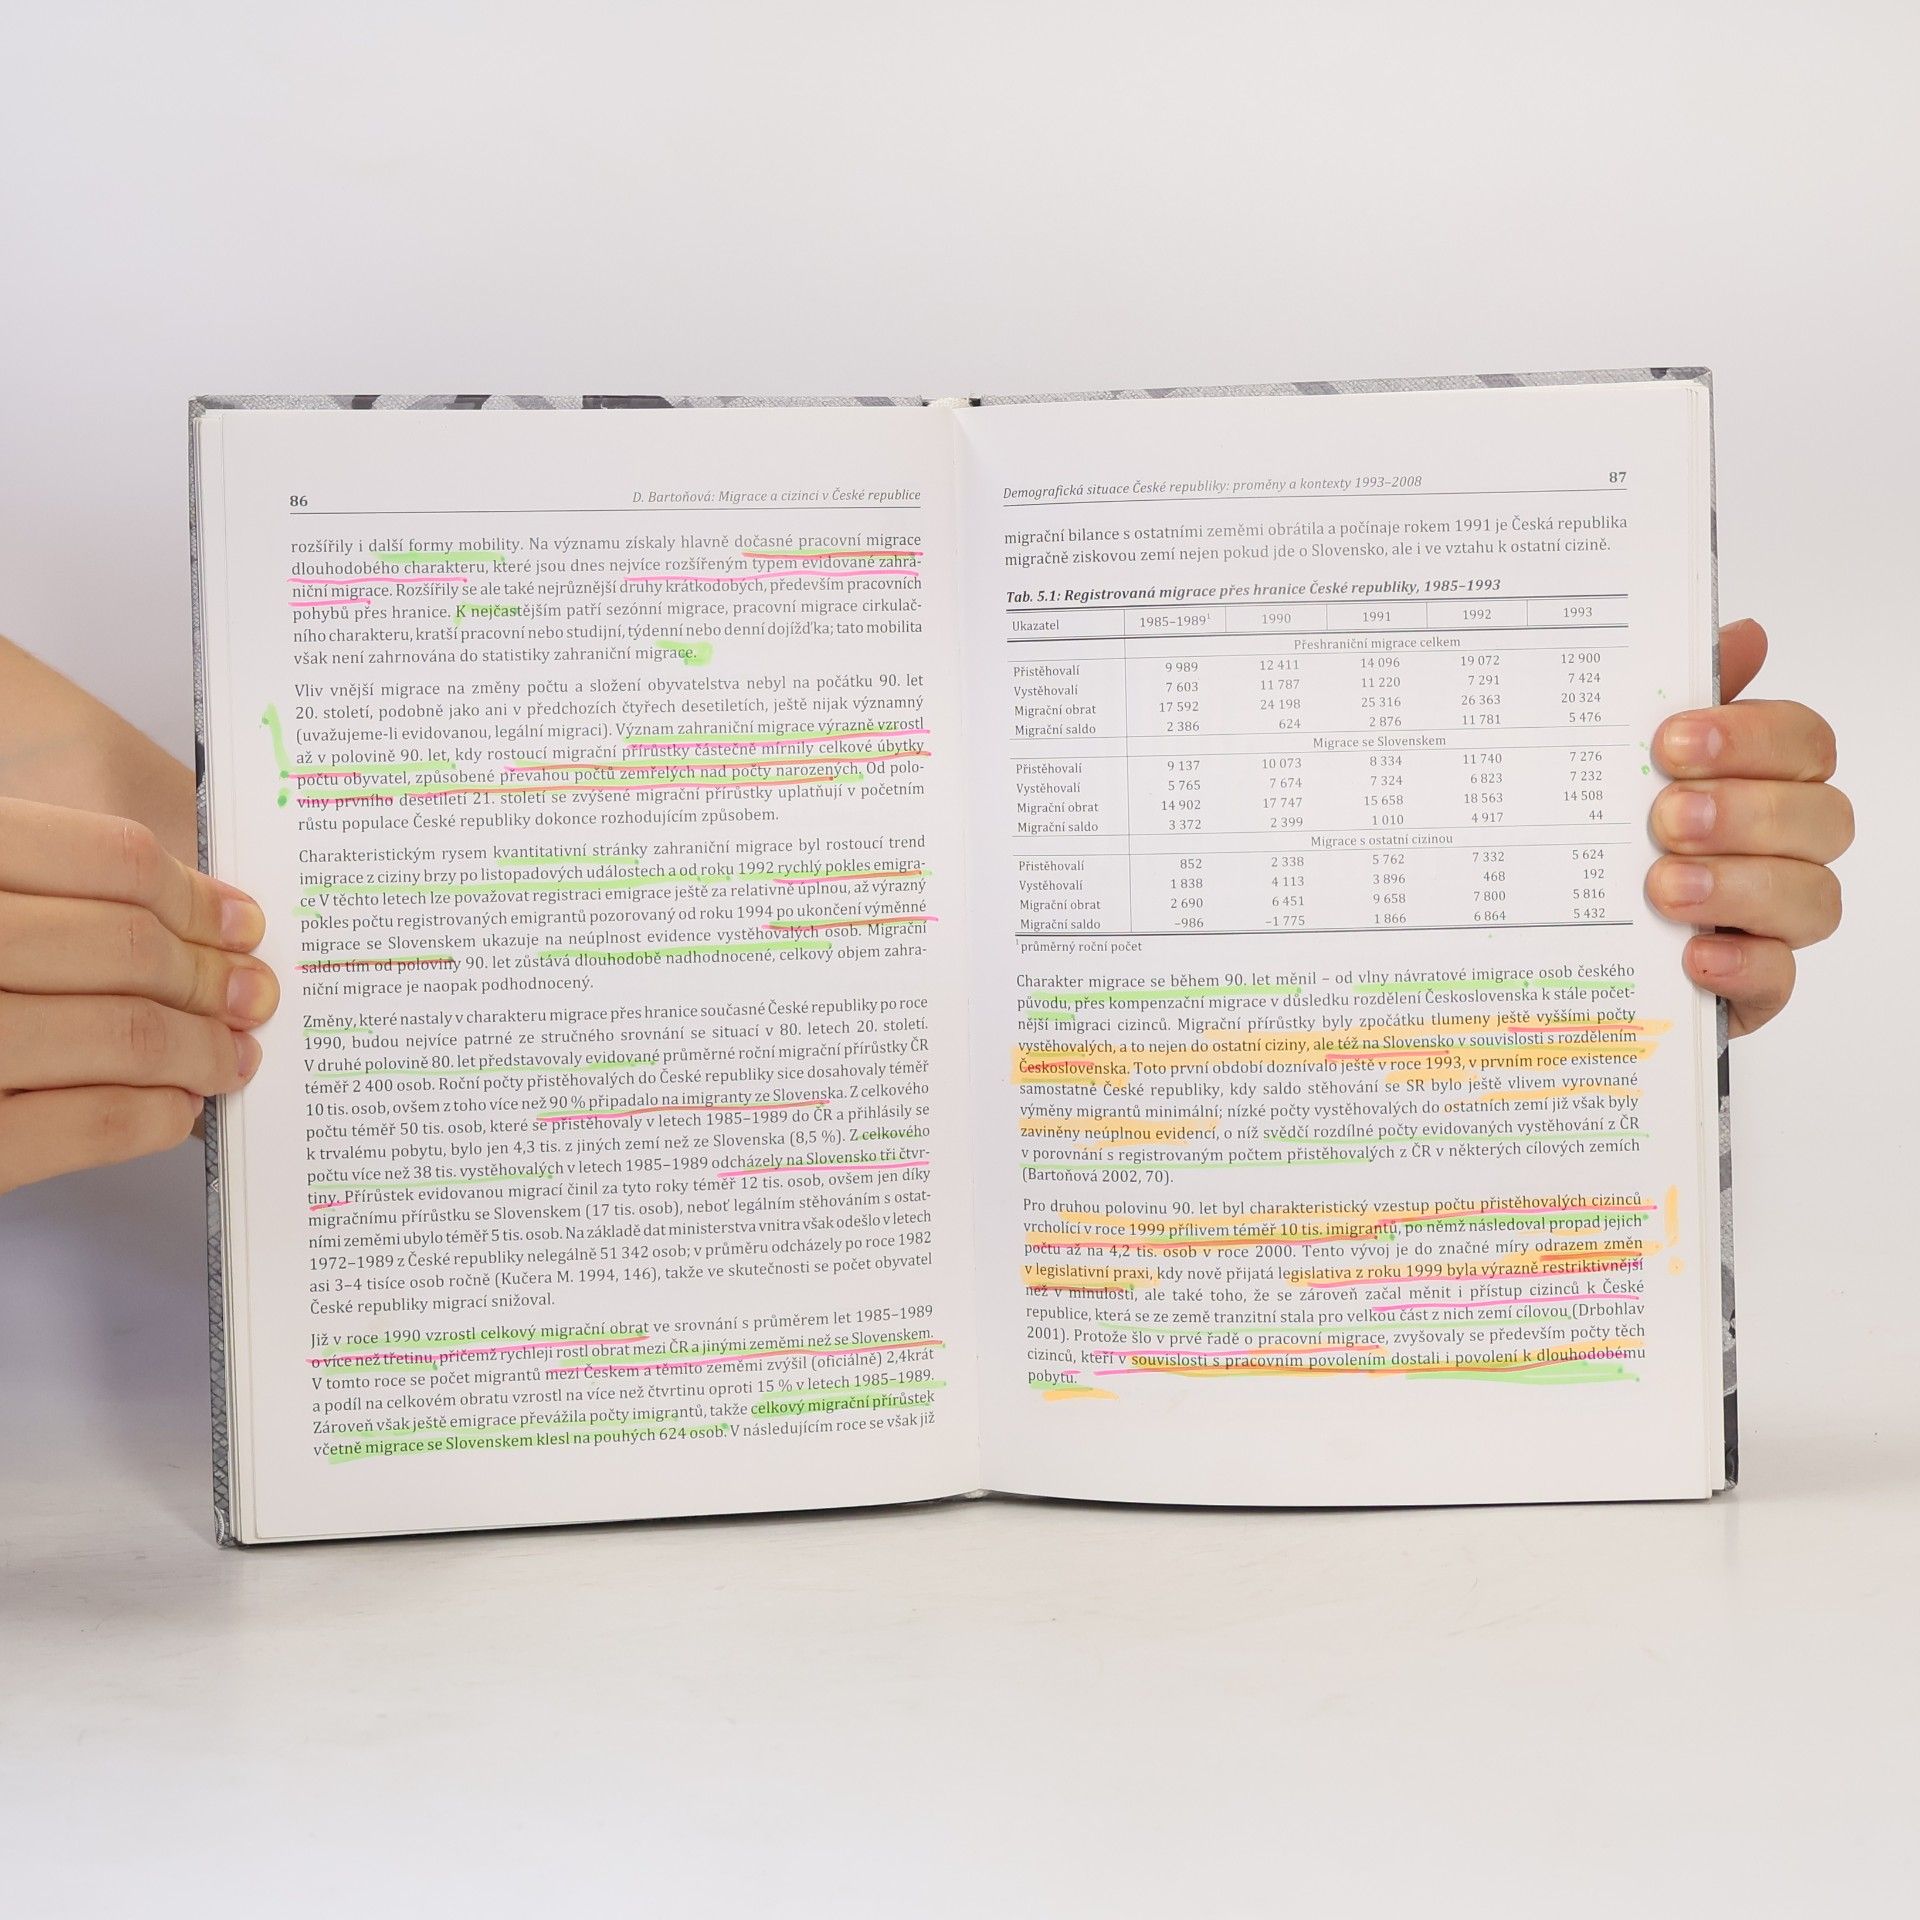 86 D. Bartoňová: Migrace a cizinci v České republice
rozšířily i další formy mobility. Na významu získaly hlavně dočasné pracovní migrace
dlouhodobého charakteru, které jsou dnes nejvíce rozšířeným typem evidované zahra-
niční migrace. Rozšířily se ale také nejrůznější druhy krátkodobých, především pracovních
pohybů přes hranice. K nejčastějším patří sezónní migrace, pracovní migrace cirkulač-
ního charakteru, kratší pracovní nebo studijní, týdenní nebo denní dojížďka; tato mobilita
však není zahrnována do statistiky zahraniční migrace.
Vliv vnější migrace na změny počtu a složení obyvatelstva nebyl na počátku 90. let
20. století, podobně jako ani v předchozích čtyřech desetiletích, ještě nijak významný
(uvažujeme-li evidovanou, legální migraci). Význam zahraniční migrace výrazně vzrostl
až v polovině 90. let, kdy rostoucí migrační přírůstky částečně mírnily celkové úbytky
počtu obyvatel, způsobené převahou počtů zemřelých nad počty narozených. Od polo-
viny prvního desetiletí 21. století se zvýšené migrační přírůstky uplatňují v početním
růstu populace České republiky dokonce rozhodujícím způsobem.
Charakteristickým rysem kvantitativní stránky zahraniční migrace byl rostoucí trend
imigrace z ciziny brzy po listopadových událostech a od roku 1992 rychlý pokles emigra-
ce V těchto letech lze považovat registraci emigrace ještě za relativně úplnou, až výrazný
pokles počtu registrovaných emigrantů pozorovaný od roku 1994 po ukončení výměnné
migrace se Slovenskem ukazuje na neúplnost evidence vystěhovalých osob. Migrační
saldo tím od poloviny 90. let zůstává dlouhodobě nadhodnocené, celkový objem zahra-
niční migrace je naopak podhodnocený.
Změny, které nastaly v charakteru migrace přes hranice současné České republiky po roce
1990, budou nejvíce patrné ze stručného srovnání se situací v 80. letech 20. století.
V druhé polovině 80. let představovaly evidované průměrné roční migrační přírůstky ČR
téměř 2 400 osob. Roční počty přistěhovalých do České republiky sice dosahovaly téměř
10 tis. osob, ovšem z toho více než 90 % připadalo na imigranty ze Slovenska. Z celkového
počtu téměř 50 tis. osob, které se přistěhovaly v letech 1985–1989 do ČR a přihlásily se
k trvalému pobytu, bylo jen 4,3 tis. z jiných zemí než ze Slovenska (8,5 %). Z celkového
počtu více než 38 tis. vystěhovalých v letech 1985–1989 odcházely na Slovensko tři čtvr-
tiny. Přírůstek evidovanou migrací činil za tyto roky téměř 12 tis. osob, ovšem jen díky
migračnímu přírůstku se Slovenskem (17 tis. osob), neboť legálním stěhováním s ostat-
ními zeměmi ubylo téměř 5 tis. osob. Na základě dat ministerstva vnitra však odešlo v letech
1972–1989 z České republiky nelegálně 51 342 osob; v průměru odcházely po roce 1982
asi 3–4 tisíce osob ročně (Kučera M. 1994, 146), takže ve skutečnosti se počet obyvatel
České republiky migrací snižoval.
Již v roce 1990 vzrostl celkový migrační obrat ve srovnání s průměrem let 1985–1989
o více než třetinu, přičemž rychleji rostl obrat mezi ČR a jinými zeměmi než se Slovenskem.
V tomto roce se počet migrantů mezi Českem a těmito zeměmi zvýšil (oficiálně) 2,4krát
a podíl na celkovém obratu vzrostl na více než čtvrtinu oproti 15 % v letech 1985–1989.
Zároveň však ještě emigrace převážila počty imigrantů, takže celkový migrační přírůstek
včetně migrace se Slovenskem klesl na pouhých 624 osob. V následujícím roce se však již
Demografická situace České republiky: proměny a kontexty 1993–2008 87
migrační bilance s ostatními zeměmi obrátila a počínaje rokem 1991 je Česká republika
migračně ziskovou zemí nejen pokud jde o Slovensko, ale i ve vztahu k ostatní cizině.
Tab. 5.1: Registrovaná migrace přes hranice České republiky, 1985–1993
Ukazatel 1985–1989¹ 1990 1991 1992 1993
Přeshraniční migrace celkem
Přistěhovalí 9 989 12 411 14 096 19 072 12 900
Vystěhovalí 7 603 11 787 11 220 7 291 7 424
Migrační obrat 17 592 24 198 25 316 26 363 20 324
Migrační saldo 2 386 624 2 876 11 781 5 476
Migrace se Slovenskem
Přistěhovalí 9 137 10 073 8 334 11 740 7 276
Vystěhovalí 5 765 7 674 7 324 6 823 7 232
Migrační obrat 14 902 17 747 15 658 18 563 14 508
Migrační saldo 3 372 2 399 1 010 4 917 44
Migrace s ostatní cizinou
Přistěhovalí 852 2 338 5 762 7 332 5 624
Vystěhovalí 1 838 4 113 3 896 468 192
Migrační obrat 2 690 6 451 9 658 7 800 5 816
Migrační saldo –986 –1 775 1 866 6 864 5 432
¹ průměrný roční počet
Charakter migrace se během 90. let měnil – od vlny návratové imigrace osob českého
původu, přes kompenzační migrace v důsledku rozdělení Československa k stále počet-
nější imigraci cizinců. Migrační přírůstky byly zpočátku tlumeny ještě vyššími počty
vystěhovalých, a to nejen do ostatní ciziny, ale též na Slovensko v souvislosti s rozdělením
Československa. Toto první období doznívalo ještě v roce 1993, v prvním roce existence
samostatné České republiky, kdy saldo stěhování se SR bylo ještě vlivem vyrovnané
výměny migrantů minimální; nízké počty vystěhovalých do ostatních zemí již však byly
zaviněny neúplnou evidencí, o níž svědčí rozdílné počty evidovaných vystěhování z ČR
v porovnání s registrovaným počtem přistěhovalých z ČR v některých cílových zemích
(Bartoňová 2002, 70).
Pro druhou polovinu 90. let byl charakteristický vzestup počtu přistěhovalých cizinců
vrcholící v roce 1999 přílivem téměř 10 tis. imigrantů, po němž následoval propad jejich
počtu až na 4,2 tis. osob v roce 2000. Tento vývoj je do značné míry odrazem změn
v legislativní praxi, kdy nově přijatá legislativa z roku 1999 byla výrazně restriktivnější
než v minulosti, ale také toho, že se zároveň začal měnit i přístup cizinců k České
republice, která se ze země tranzitní stala pro velkou část z nich zemí cílovou (Drbohlav
2001). Protože šlo v prvé řadě o pracovní migrace, zvyšovaly se především počty těch
cizinců, kteří v souvislosti s pracovním povolením dostali i povolení k dlouhodobému
pobytu.